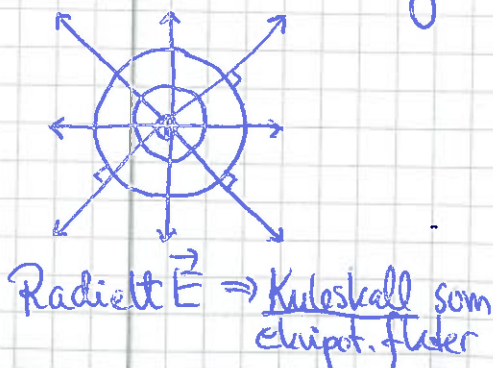 Radielt E⃗ ⇒ Kuleskall som
ekvipot. flater